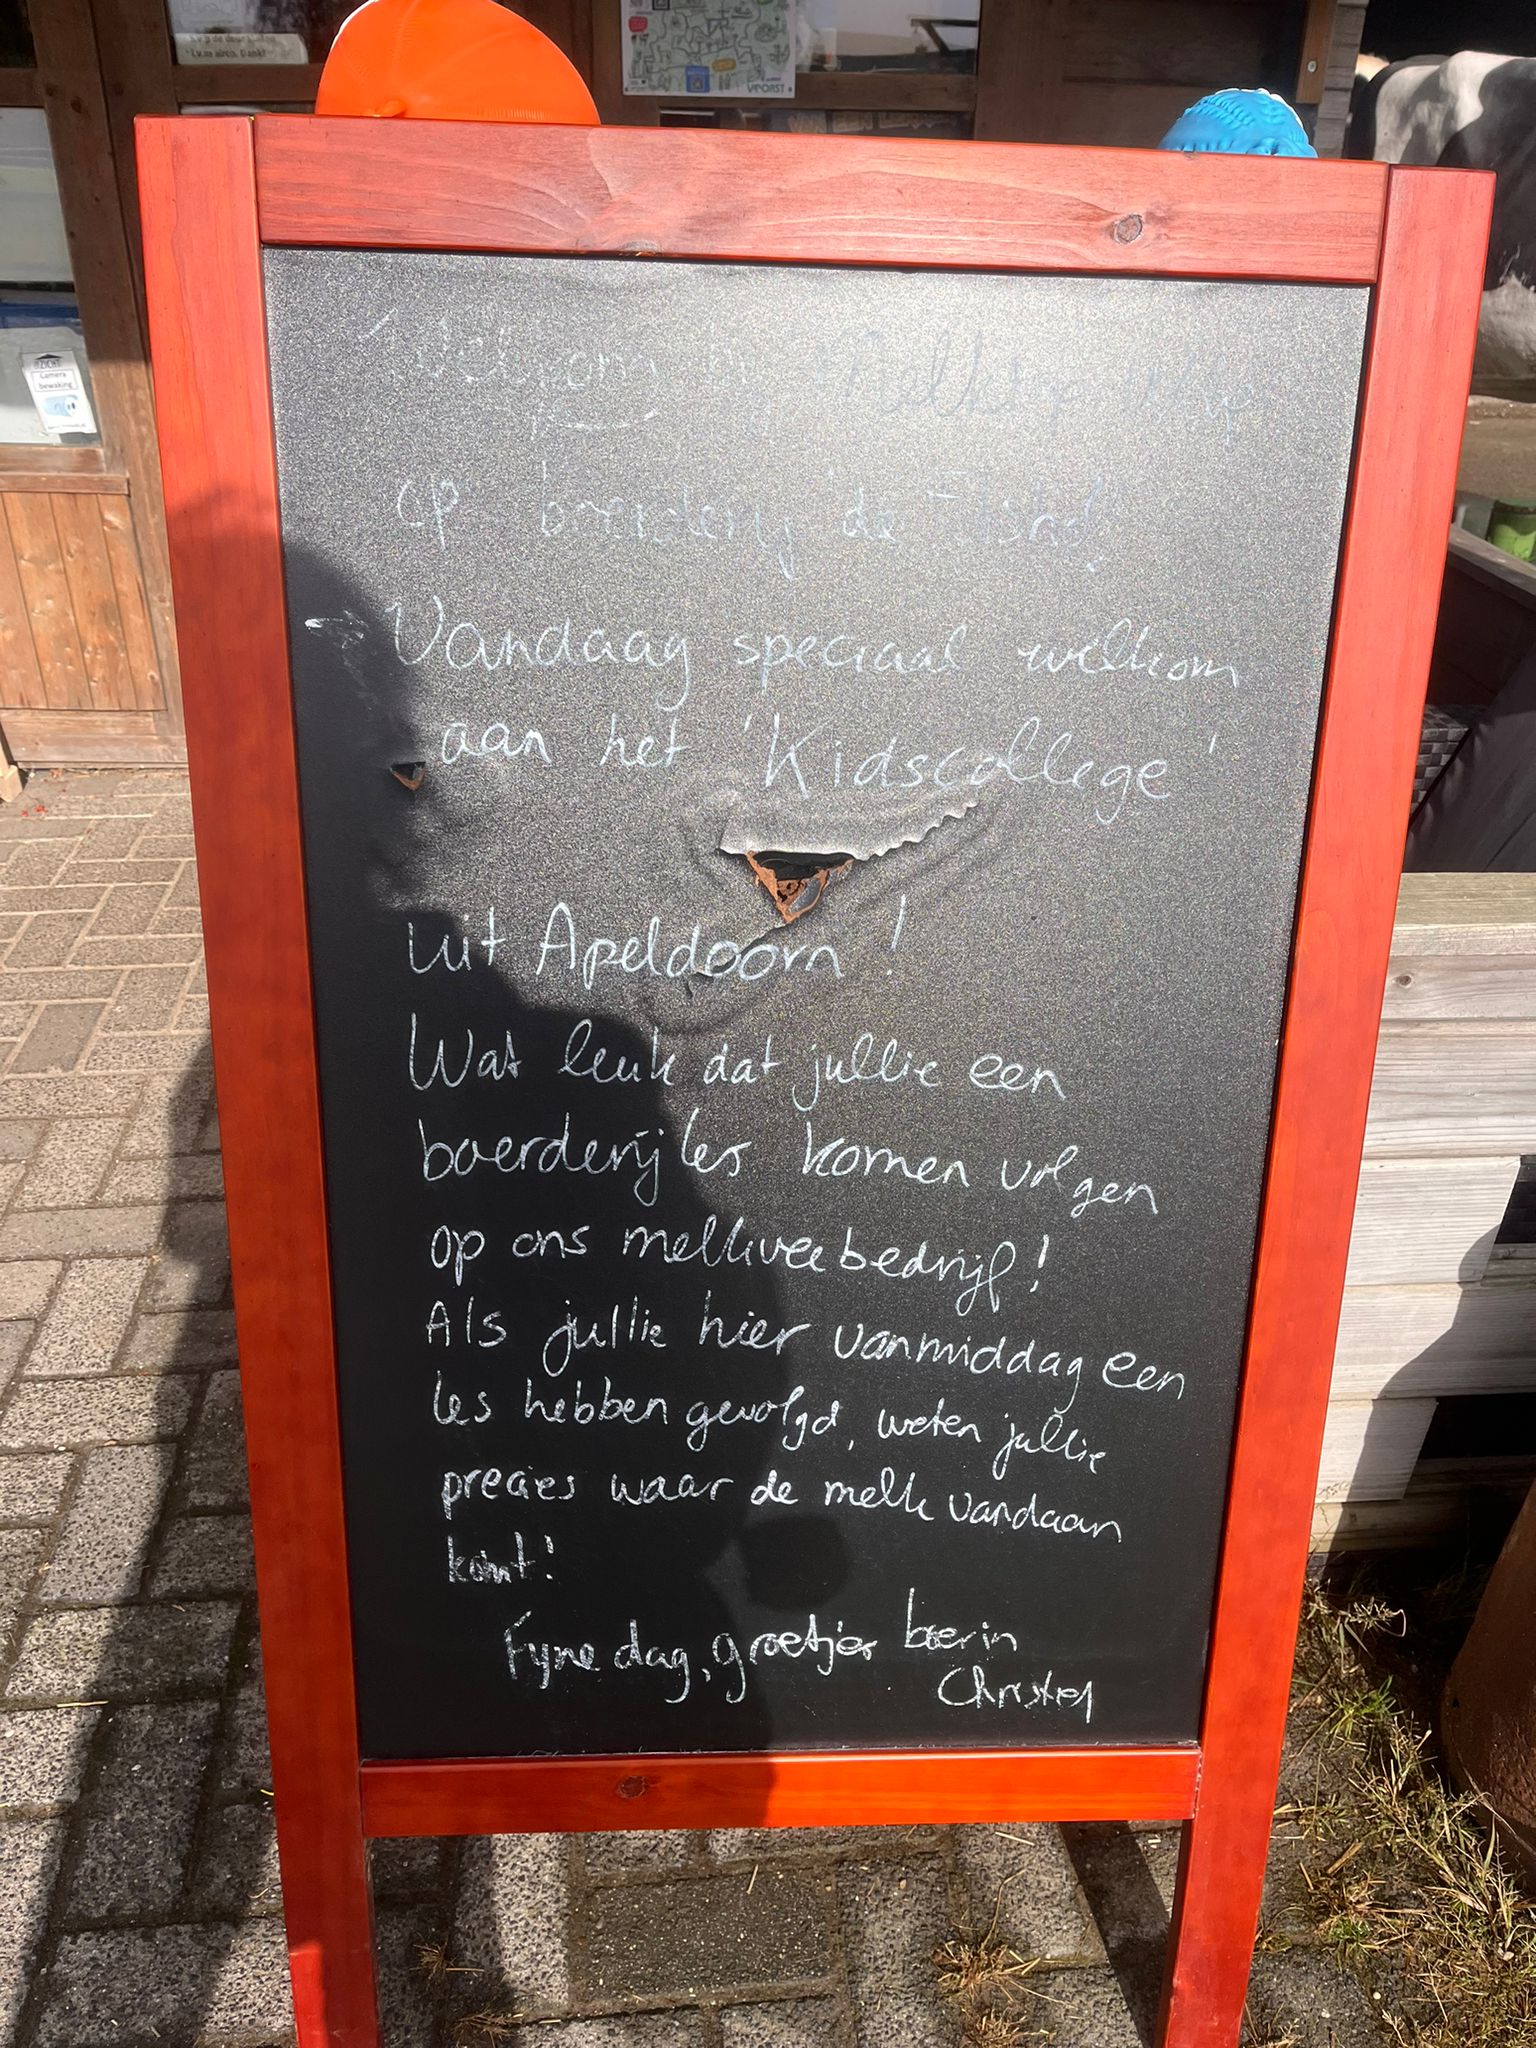 Camera
bewaking
VOORST
op boerderij de
Vandaag speciaal welkom
aan het 'Kidscollege'
uit Apeldoorn!
Wat leuk dat jullie een
boerderijles komen volgen
op ons melkveebedrijf!
Als jullie hier vanmiddag een
les hebben gevolgd, weten jullie
precies waar de melk vandaan
komt!
Fijne dag, groetjes boerin
Christel